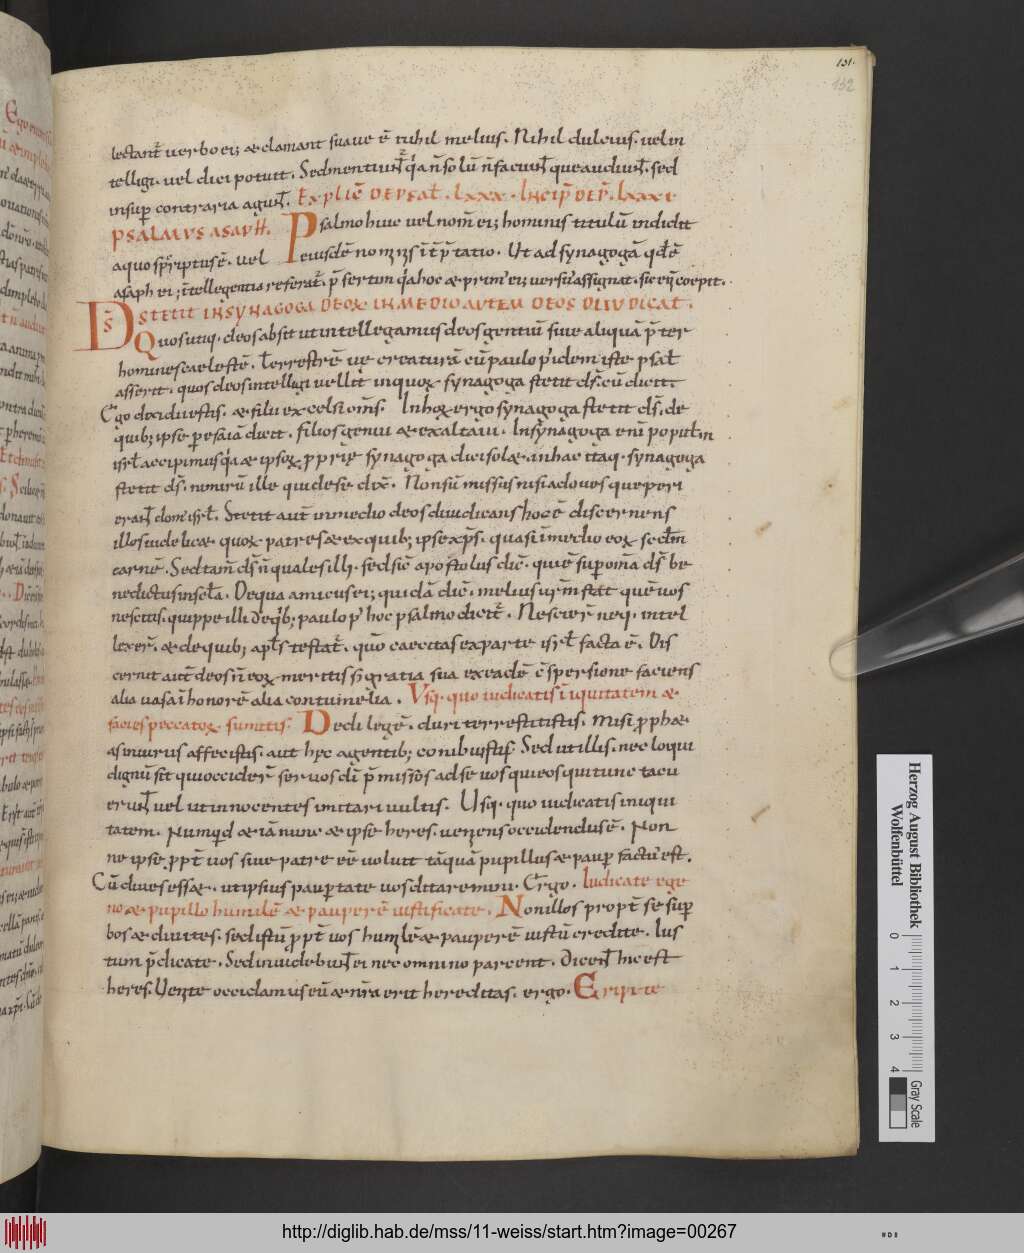 131.
132
lectant᷑ verbo ei; & clamant suave ē nihil melius. Nihil dulcius. vel in
telligi. vel dici potuit. Sed mentiunt᷑ q̇a ñ solū ñ faciunt que audiunt. sed
insup contraria agunt. EXPLIC̄ DE PSAL̄. LXXX. INCIP̄ DE P̄. LXXXI
PSALMVS ASAPH. Psalmo huic vel nom̄ ei; hominis titulū indidit
a quo sp̄riptus ē. vel eiusdē nominis īt p̄tatio. Ut ad synagogā qd̄ ē
asaph ei; intellegentia referat᷑.
Ds STETIT IN SYNAGOGA DEOꝝ IN MEDIO AVTEM DEOS DIIVDICAT.
Quos utiq. deos absit ut intellegamus deos gentiū sive aliquā p̄ter
homines caelestē. Terrestrē ue creaturā cū paulo p̉ idem iste psal̄
asserit. quos deos intelligi vellit in quoꝝ synagoga stetit ds̄. cū dicit
Ego dixi dii estis. & filii excelsi om̄s. In hoꝝ ergo synagoga stetit ds̄. de
quib; ipse p esaiā dicit. filios genui & exaltavi. In synagoga enī popul̄ in
isrl̄ accipimus q̇a & ipsoꝝ pprię synagoga dici sol&. in hac itaq. synagoga
stetit ds̄. nemirū ille qui de se dix̄. Non sū missus nisi ad oves que peri
erant dom' isrl̄. Stetit aut̄ in medio deos diiudicans hoc ē discernens
illos videlic& quoꝝ patres & ex quib; ipse xp̄s. quasi ī medio eoꝝ sc̄dm̄
carnē. Sed tam̄ ds̄ ñ quales illi. sed sic̄ apostolus dic̄. qui ē sup om̄a ds̄ be
nedictus in sc̄la. De qua amicus ei; quidā dic̄. melius ur̄m stat quē vos
nescitis. quippe illi de q̇b; paulo p' hoc psalmo dicit᷑. Nescier̄ neq. intel
lexer̄. & de quib; apl̄s testat᷑. qūo caecitas ex parte isrl̄ facta ē. Dis
cernit aut̄ deos ñ eoꝝ meritis s; gratia sua ex eadē c̄spersione faciens
alia vasa ī honorē alia contumelia. Usq. quo iudicatis ī iquitatem &
facies peccatoꝝ sumitis. Dedi legē. duri terrestitistis. misi pph&
as in iurus affecistis. aut hęc agentib; conibuistis. Sed ut illis. nec loqui
dignū sit qui occider̄ servos di p̄missos ad se vos quieos qui tunc tacu
erunt vel ut innocentes imitari vultis. Usq. quo iudicatis iniqui
tatem. Numqd & iā nunc & ipse heres. veniens occidendus ē. Non
ne ipse ppt̄ vos sive patre eē voluit tāquā pupillus & paup factus est.
Cū dives ess&. ut ipsius paup tate vos ditaremini. Ergo. Iudicate ege
no & pupillo humilē & pauperē iustificate. Non illos propt̄ se sup
bos & divites. sed istū ppt̄ vos humilē & pauperē iustū credite. Ius
tum p̄dicate. Sed invidebunt ei nec omnino parcent. Dicent hic est
heres. Venite occidamus eū & nr̄a erit hereditas. ergo. Eripite
Herzog August Bibliothek
Wolfenbüttel
0 1 2 3 4
Gray Scale
http://diglib.hab.de/mss/11-weiss/start.htm?image=00267